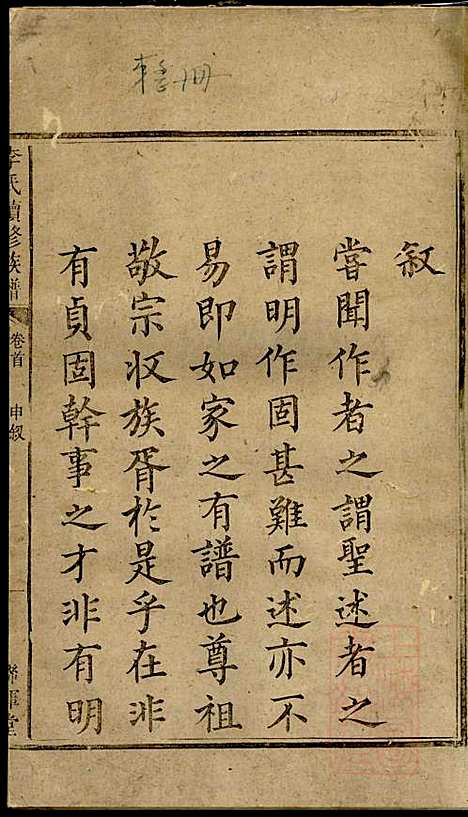 叙
嘗聞作者之謂聖述者之
謂明作固甚難而述亦不
易即如家之有譜也尊祖
敬宗収族胥於是乎在非
有貞固幹事之才非有明
李氏續修族譜
卷首
申叙
一